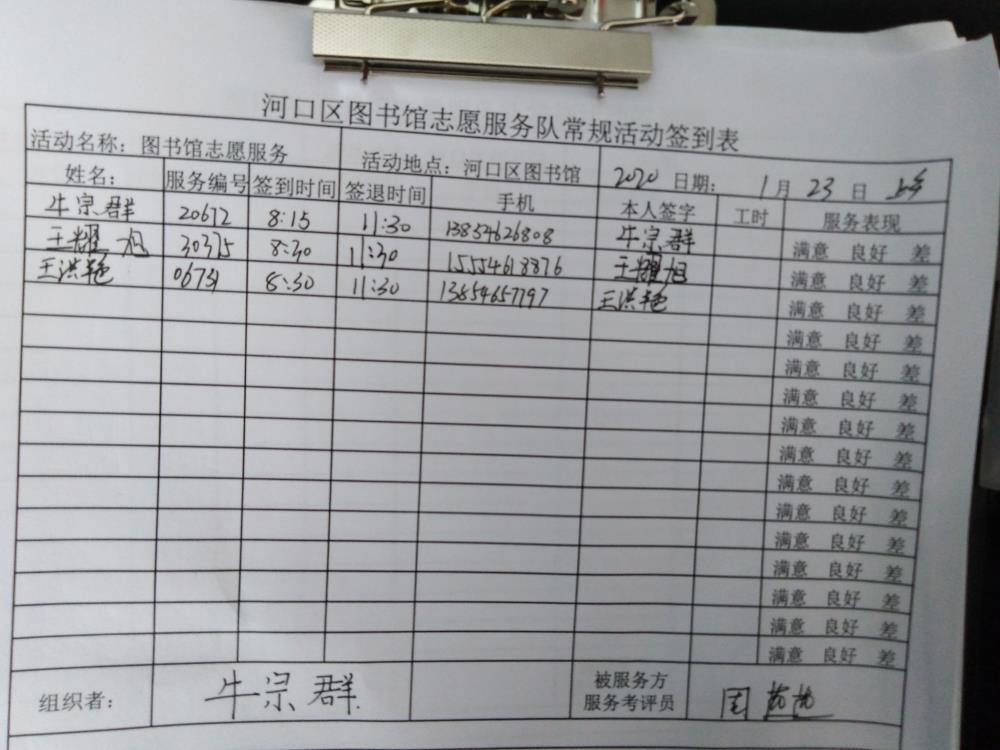 河口区图书馆志愿服务队常规活动签到表
活动名称：图书馆志愿服务 活动地点：河口区图书馆 2020 日期： 1月 23 日 上午
姓名： 服务编号 签到时间 签退时间 手机 本人签字 工时 服务表现
牛宗群 20672 8:15 11:30 13854626808 牛宗群 满意 良好 差
王耀旭 30375 8:30 11:30 15554618876 王耀旭 满意 良好 差
王洪艳 06731 8:30 11:30 13854657797 王洪艳 满意 良好 差
满意 良好 差
满意 良好 差
满意 良好 差
满意 良好 差
满意 良好 差
满意 良好 差
满意 良好 差
满意 良好 差
满意 良好 差
满意 良好 差
满意 良好 差
满意 良好 差
组织者： 牛宗群 被服务方
服务考评员